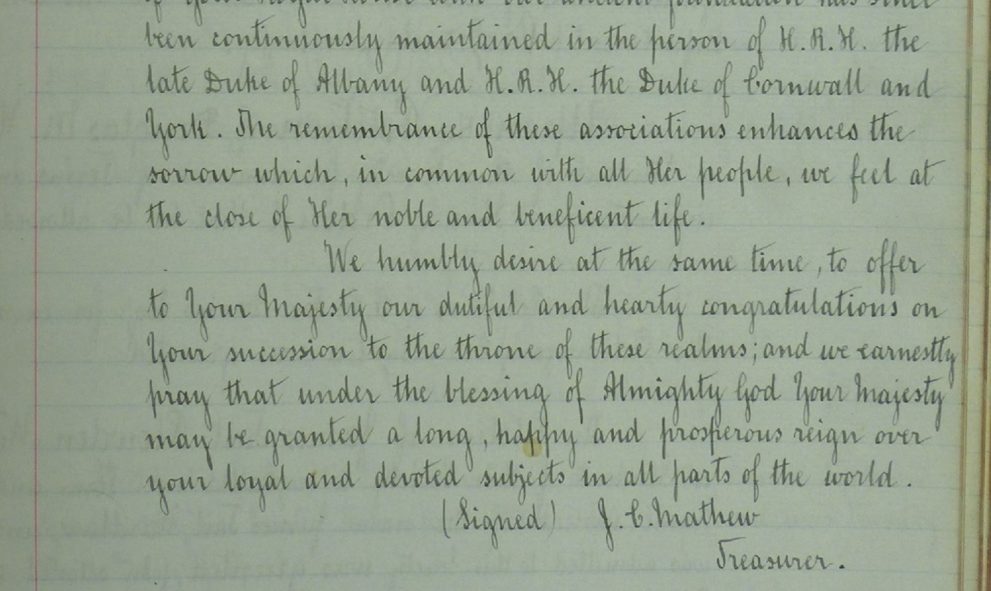 of Your Royal House with our ancient foundation has since
been continuously maintained in the person of H.R.H. the
late Duke of Albany and H.R.H. the Duke of Cornwall and
York. The remembrance of these associations enhances the
sorrow which, in common with all Her people, we feel at
the close of Her noble and beneficent life.
We humbly desire at the same time, to offer
to Your Majesty our dutiful and hearty congratulations on
Your succession to the throne of these realms; and we earnestly
pray that under the blessing of Almighty God Your Majesty
may be granted a long, happy and prosperous reign over
your loyal and devoted subjects in all parts of the world.
(Signed) J. C. Mathew
Treasurer.